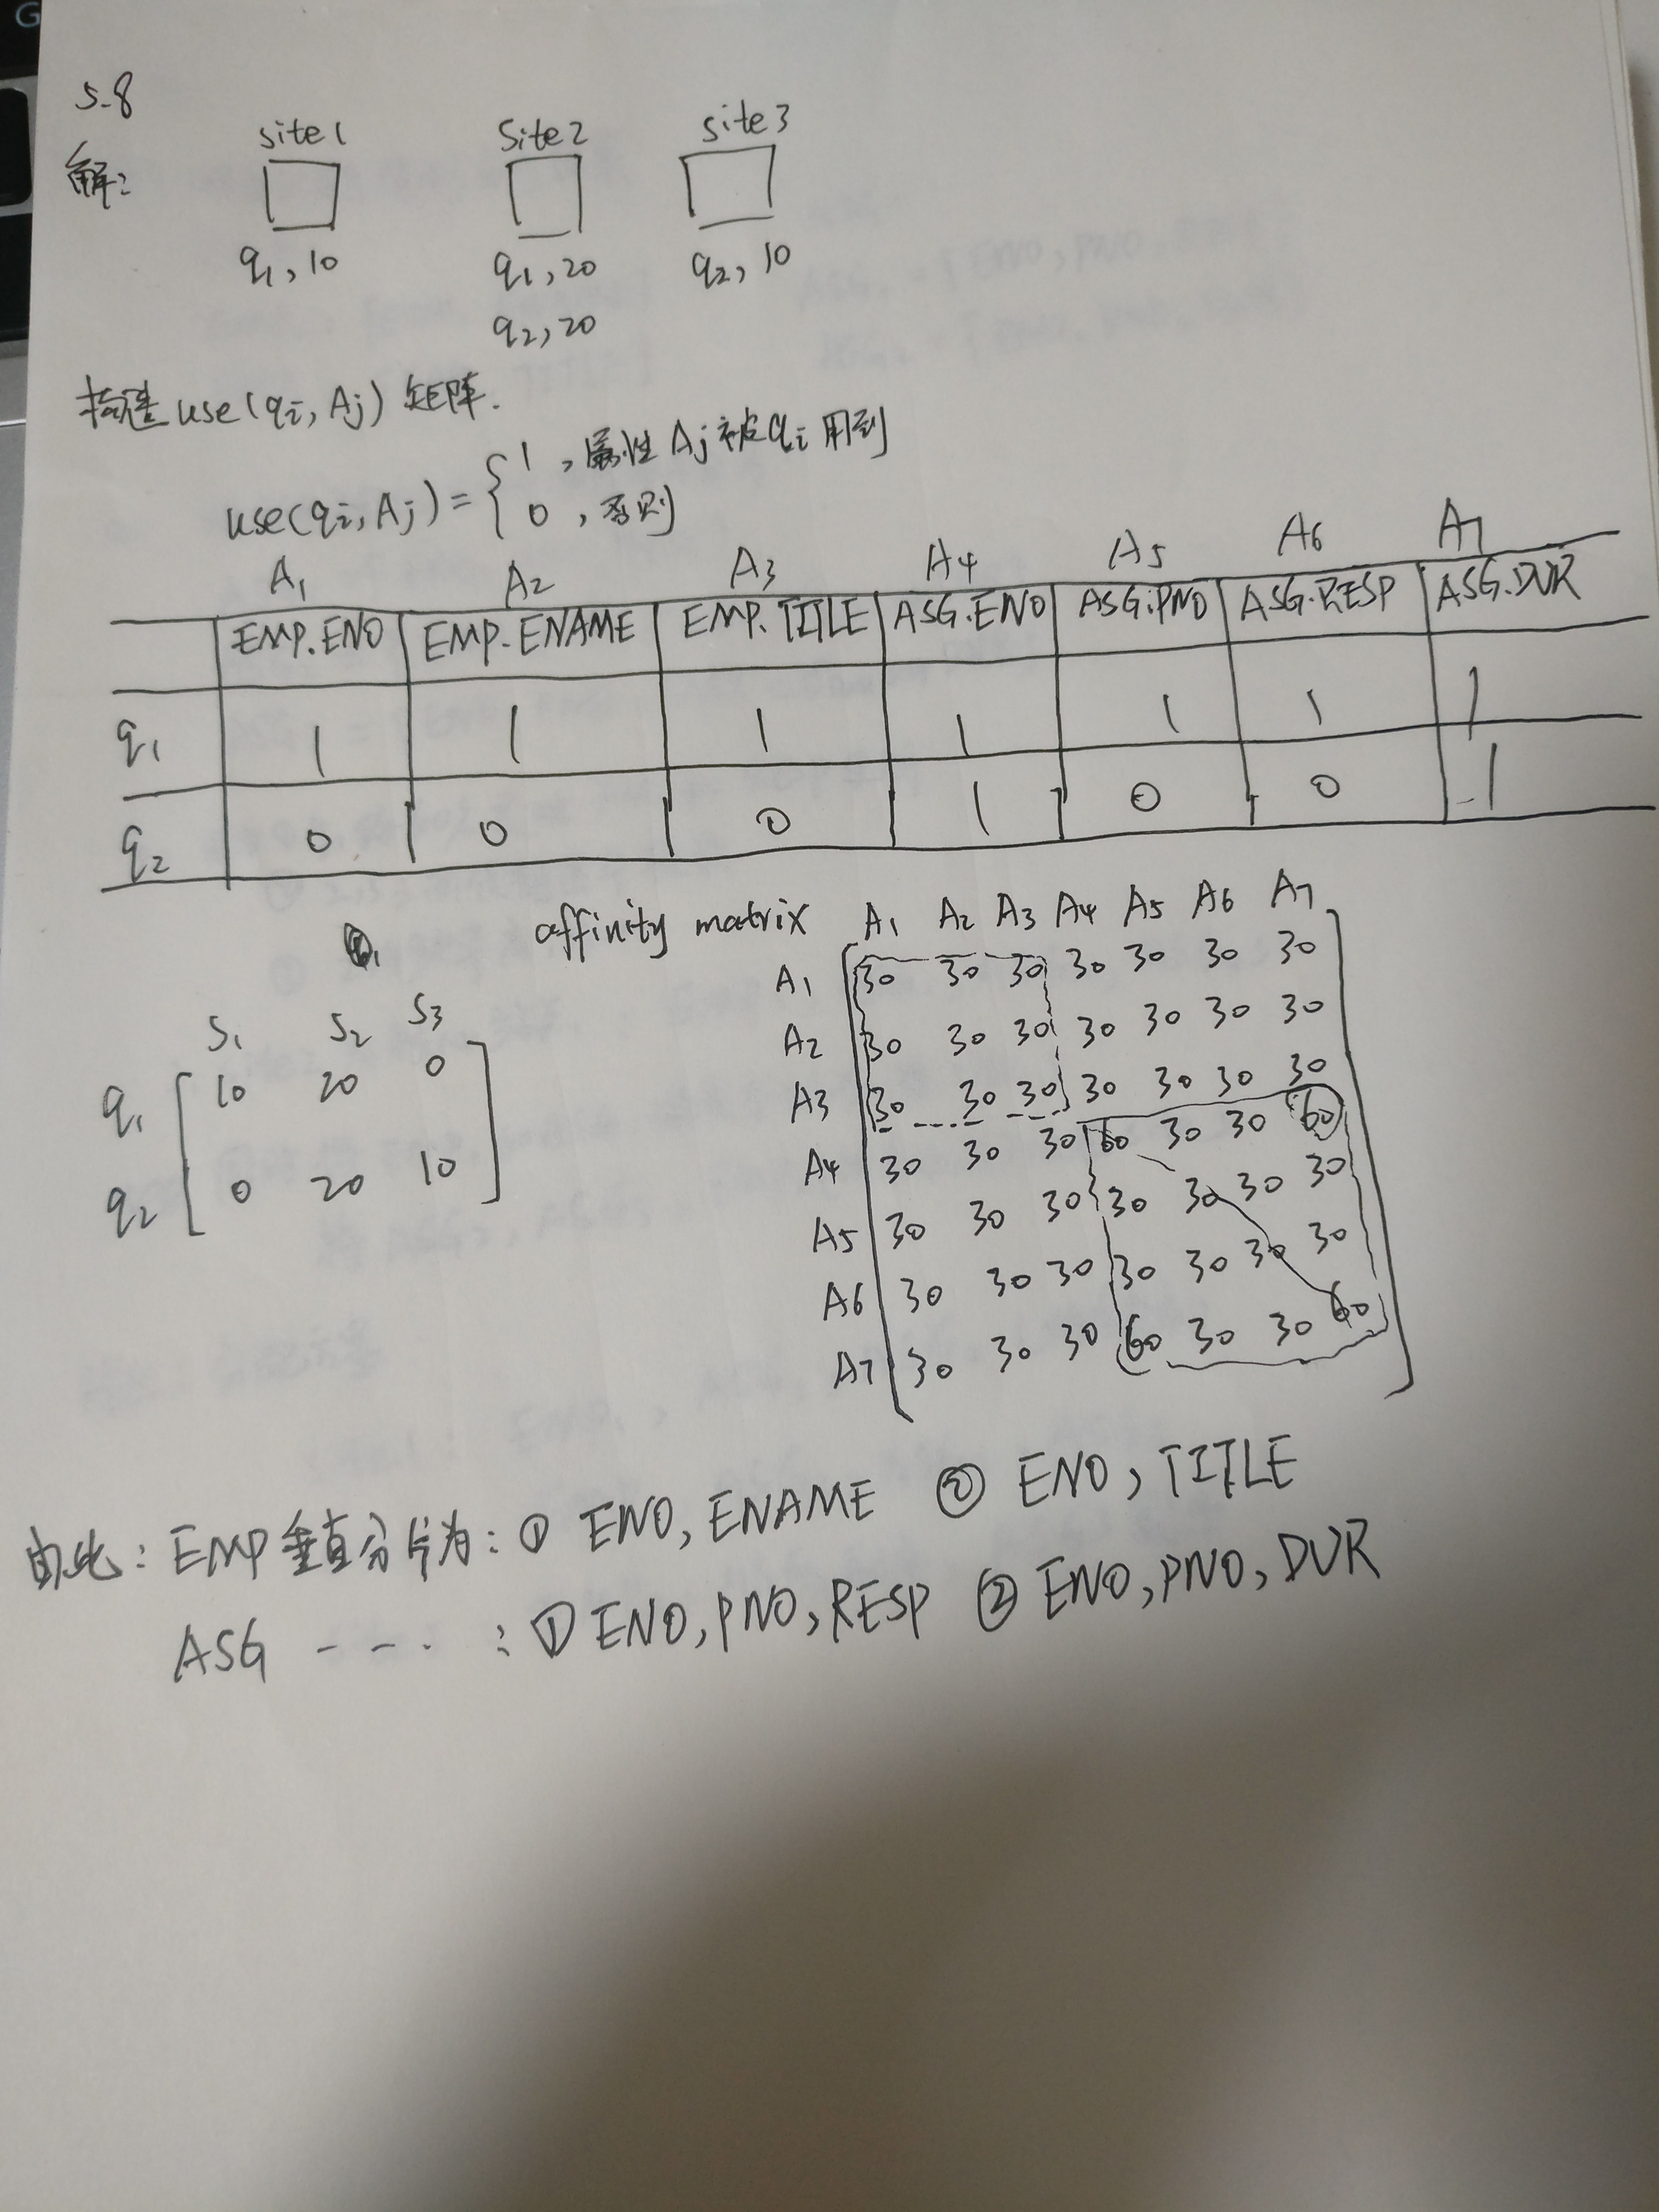 5-8
解:
site1 Site2 site3
q1,10 q1,20 q2,10
q2,20
构造use(qi,Aj)矩阵.
use(qi,Aj)={1,属性Aj被qi用到
0,否则
A1 A2 A3 A4 A5 A6 A7
EMP.ENO EMP.ENAME EMP.TITLE ASG.ENO ASG.PNO ASG.RESP ASG.DUR
q1 1 1 1 1 1 1 1
q2 0 0 0 1 0 0 1
affinity matrix A1 A2 A3 A4 A5 A6 A7
A1 30 30 30 30 30 30 30
A2 30 30 30 30 30 30 30
A3 30 30 30 30 30 30 30
A4 30 30 30 60 30 30 60
A5 30 30 30 30 30 30 30
A6 30 30 30 30 30 30 30
A7 30 30 30 60 30 30 60
S1 S2 S3
q1 10 20 0
q2 0 20 10
由此:EMP垂直分片为:① ENO,ENAME ② ENO,TITLE
ASG ---- :① ENO,PNO,RESP ② ENO,PNO,DUR